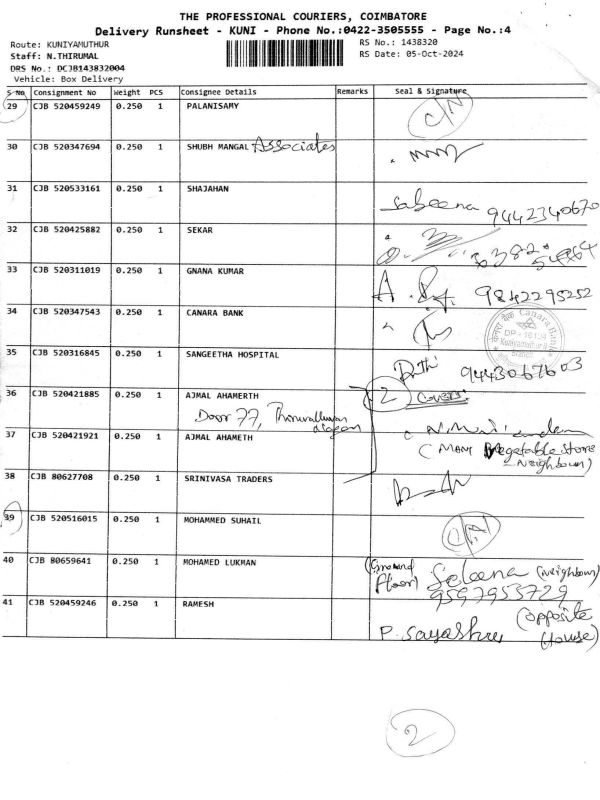 THE PROFESSIONAL COURIERS, COIMBATORE
Delivery Runsheet - KUNI - Phone No.:0422-3505555 - Page No.:4
Route: KUNIYAMUTHUR RS No.: 1438320
Staff: N.THIRUMAL RS Date: 05-Oct-2024
DRS No.: DCJB143832004
Vehicle: Box Delivery
S No Consignment No Weight PCS Consignee Details Remarks Seal & Signature
29 CJB 520459249 0.250 1 PALANISAMY C/N
30 CJB 520347694 0.250 1 SHUBH MANGAL Associates
31 CJB 520533161 0.250 1 SHAJAHAN Sabeena 9442340670
32 CJB 520425882 0.250 1 SEKAR
33 CJB 520311019 0.250 1 GNANA KUMAR 9842295252
34 CJB 520347543 0.250 1 CANARA BANK
Canara Bank
Kuniyamuthur
Branch
35 CJB 520316845 0.250 1 SANGEETHA HOSPITAL 9443067603
36 CJB 520421885 0.250 1 AJMAL AHAMERTH 2 Covers
Door 77,
37 CJB 520421921 0.250 1 AJMAL AHAMETH
(Mani Vegetable Store
- Neighbour)
38 CJB 80627708 0.250 1 SRINIVASA TRADERS
39 CJB 520516015 0.250 1 MOHAMMED SUHAIL
40 CJB 80659641 0.250 1 MOHAMED LUKMAN (Ground Floor) Seleena (Neighbour)
9597953729
41 CJB 520459246 0.250 1 RAMESH P. Sayashree (Opposite House)
2